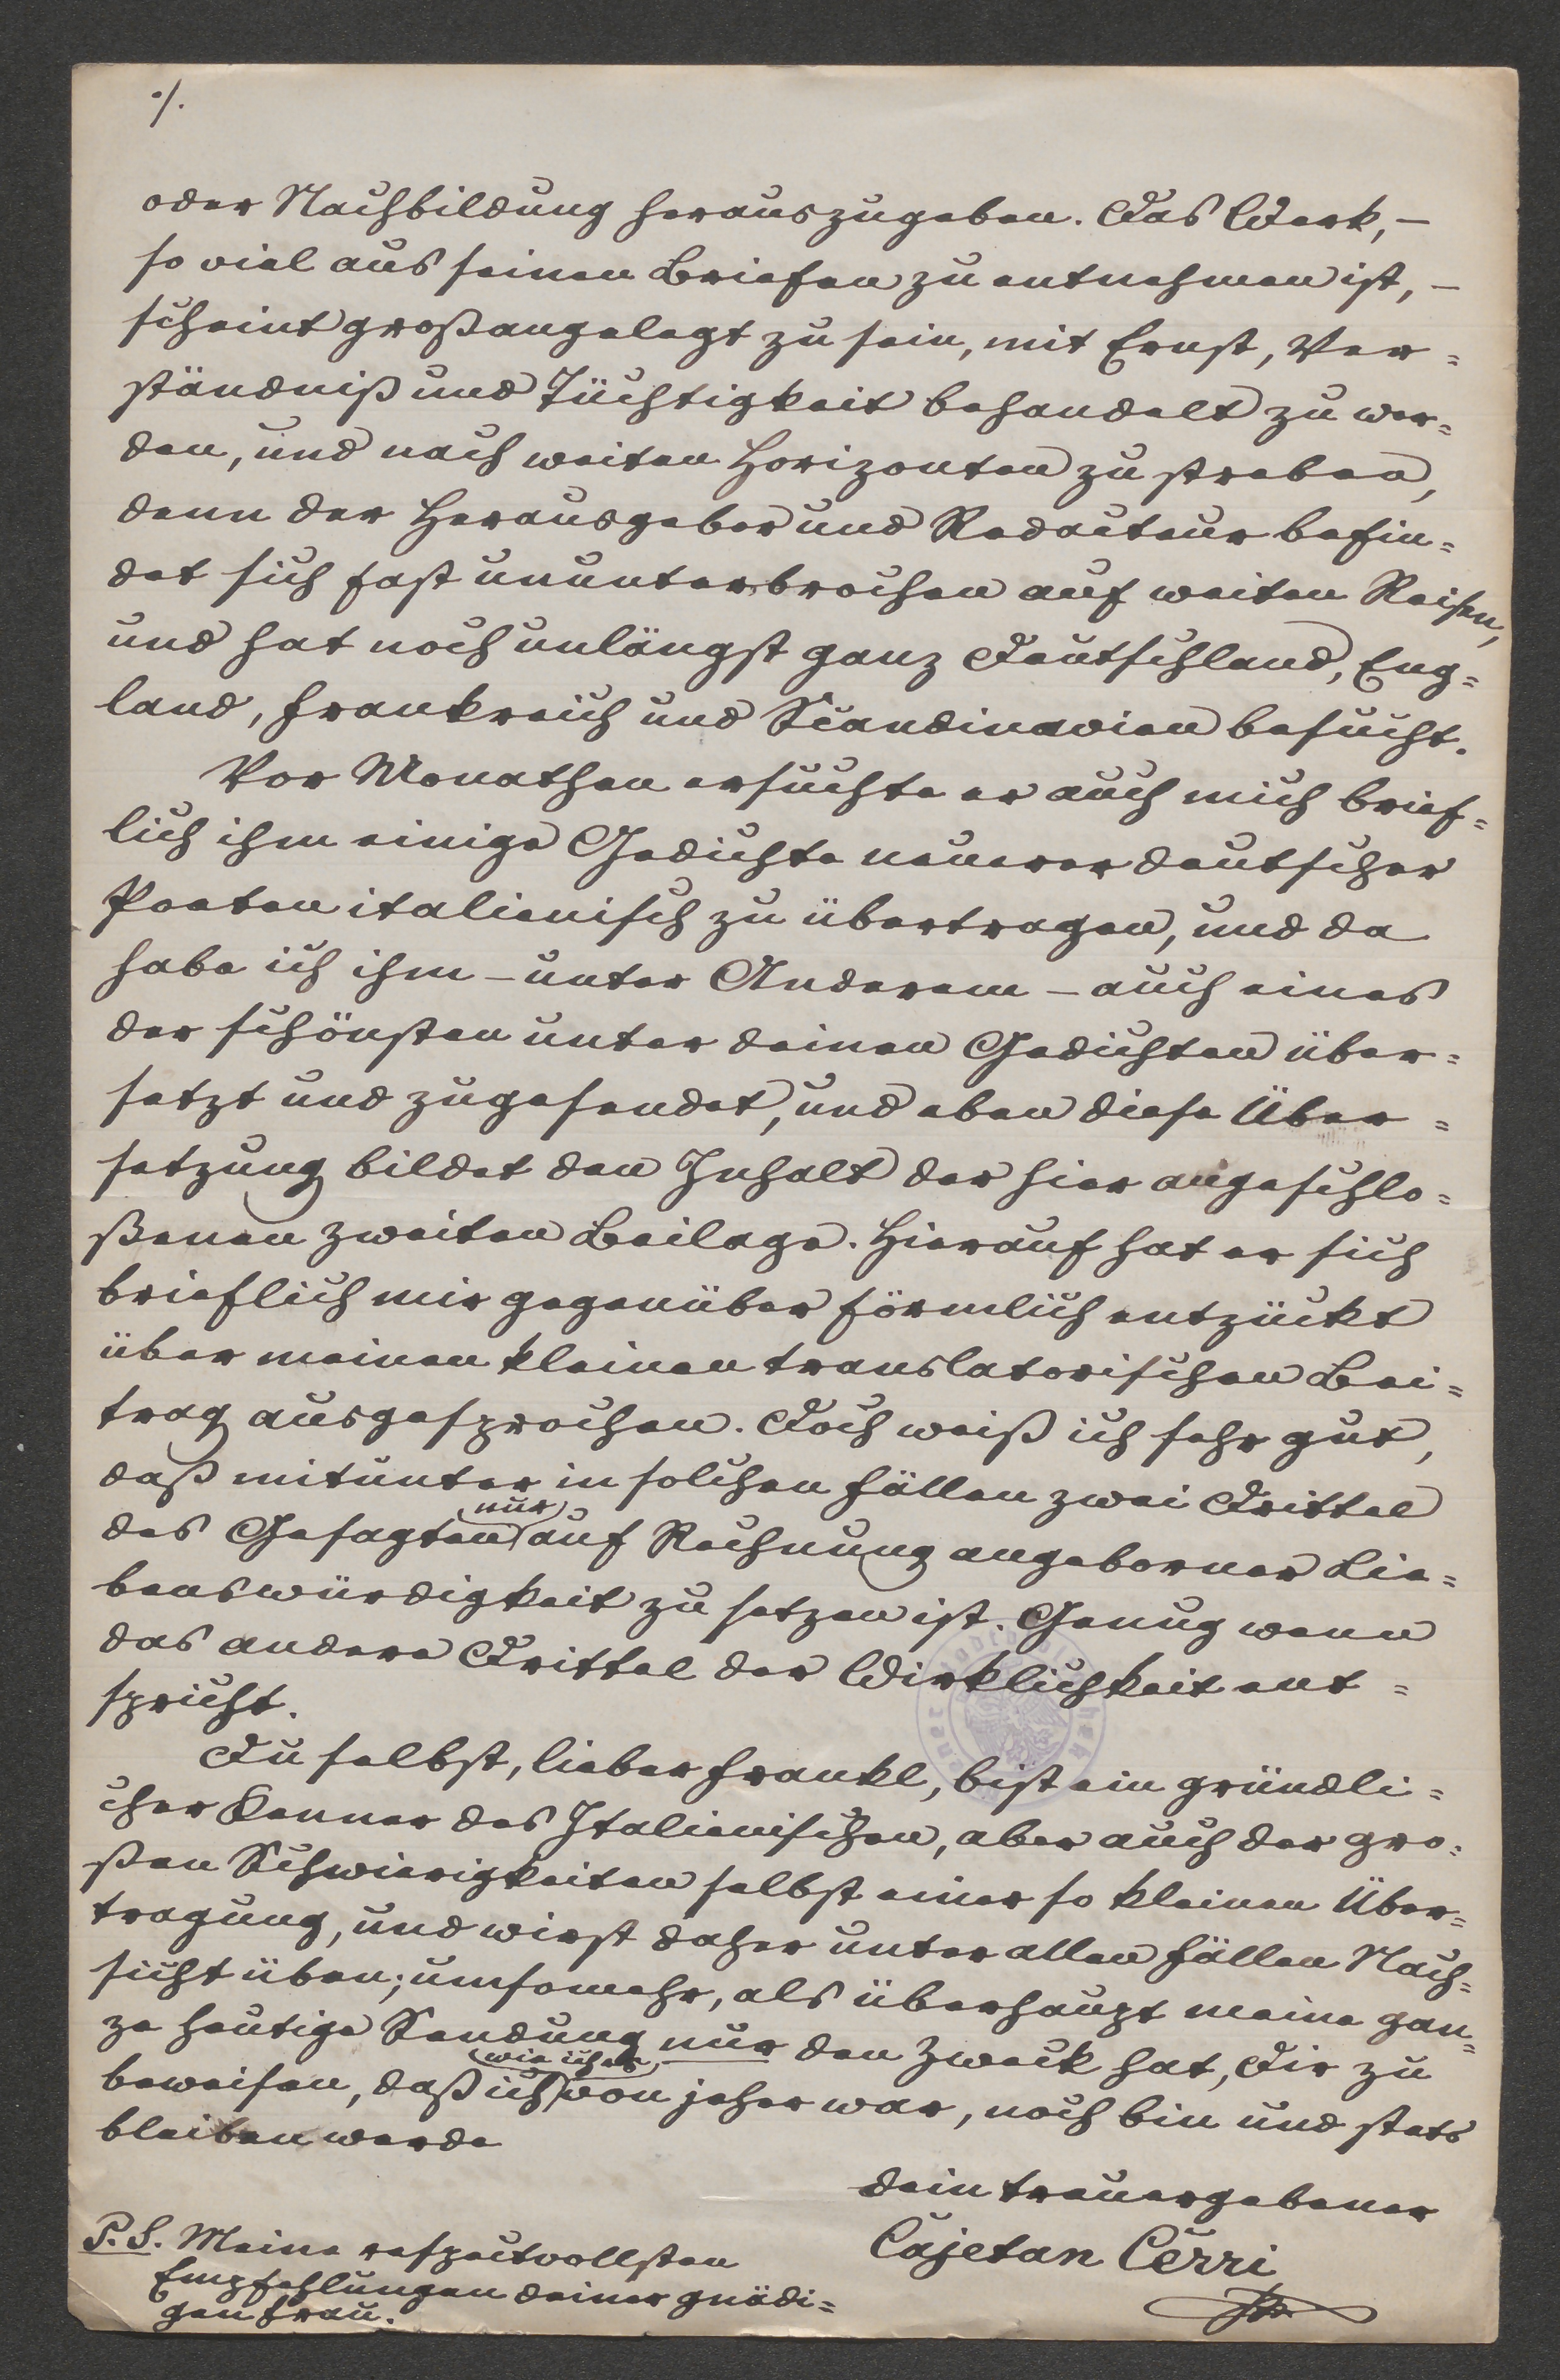 ·/.
oder Nachbildung herauszugeben. Das Werk, –
so viel aus seinen Briefen zu entnehmen ist, –
scheint großangelegt zu sein, mit Ernst, Ver=
ständniß und Tüchtigkeit behandelt zu wer=
den, und nach weiten Horizonten zu streben,
denn der Herausgeber und Redacteur befin=
det sich fast ununterbrochen auf weiten Reisen,
und hat noch unlängst ganz Deutschland, Eng=
land, Frankreich und Scandinavien besucht.
Vor Monathen ersuchte er auch mich brief=
lich ihm einige Gedichte neuerer deutscher
Poeten italienisch zu übertragen, und da
habe ich ihm – unter Anderem – auch eines
der schönsten unter deinen Gedichten über=
setzt und zugesendet, und eben diese Über=
setzung bildet den Inhalt der hier angeschlo=
ßenen zweiten Beilage. Hierauf hat er sich
brieflich mir gegenüber förmlich entzückt
über meinen kleinen translatorischen Bei=
trag ausgesprochen. Doch weiß ich sehr gut,
daß mitunter in solchen Fällen zwei Drittel
des Gesagten nur auf Rechnung angeborner Lie=
benswürdigkeit zu setzen ist. Genug wenn
das andere Drittel der Wirklichkeit ent=
spricht.
Du selbst, lieber Frankl, bist ein gründli=
cher Kenner des Italienischen, aber auch der gro=
ßen Schwierigkeiten selbst einer so kleinen Über=
tragung, und wirst daher unter allen Fällen Nach=
sicht üben; umsomehr, als überhaupt meine gan=
ze heutige Sendung nur den Zweck hat, Dir zu
beweisen, daß ich, wie ich es von jeher war, noch bin und stets
bleiben werde
dein treuergebener
Cajetan Cerri
P.S. Meine respectvollsten
Empfehlungen deiner gnädi=
gen Frau.